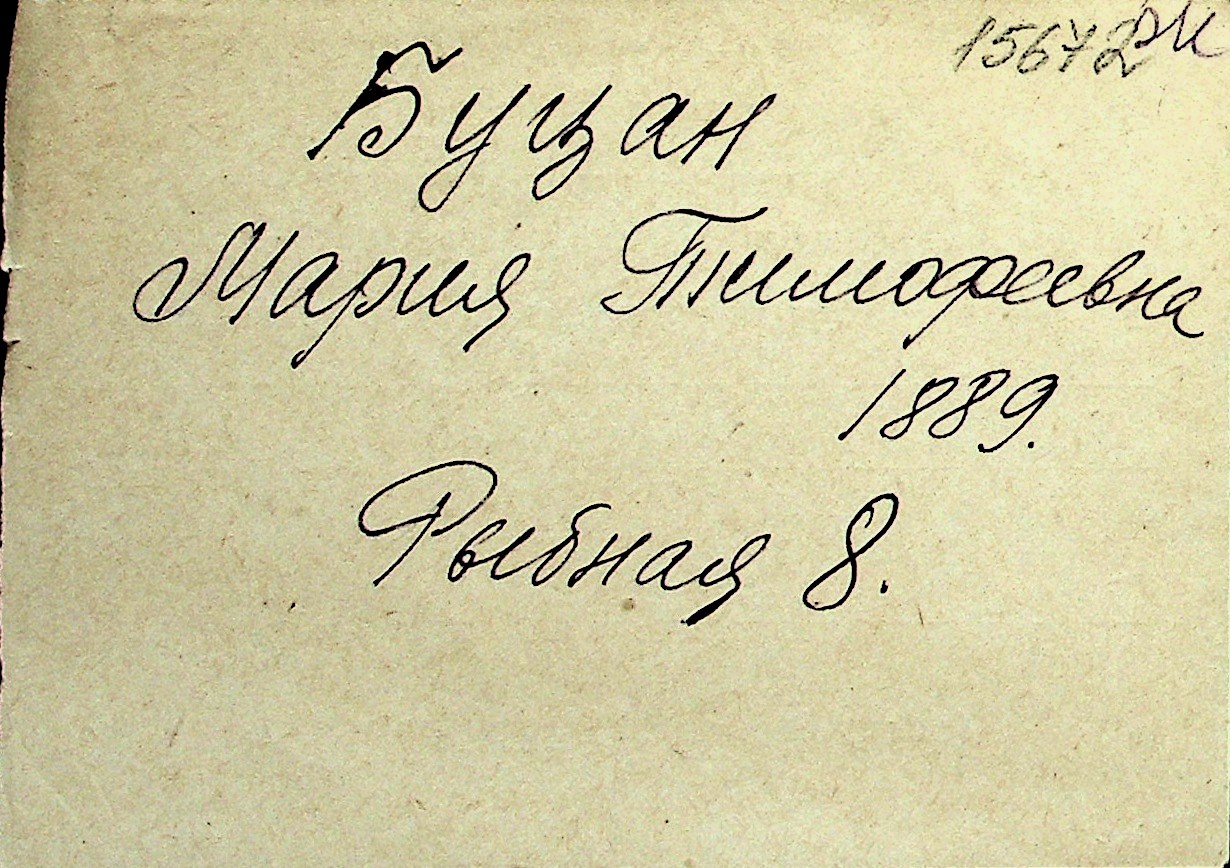 15672
Буцан
Мария Тимофеевна
1889.
Рыбная 8.